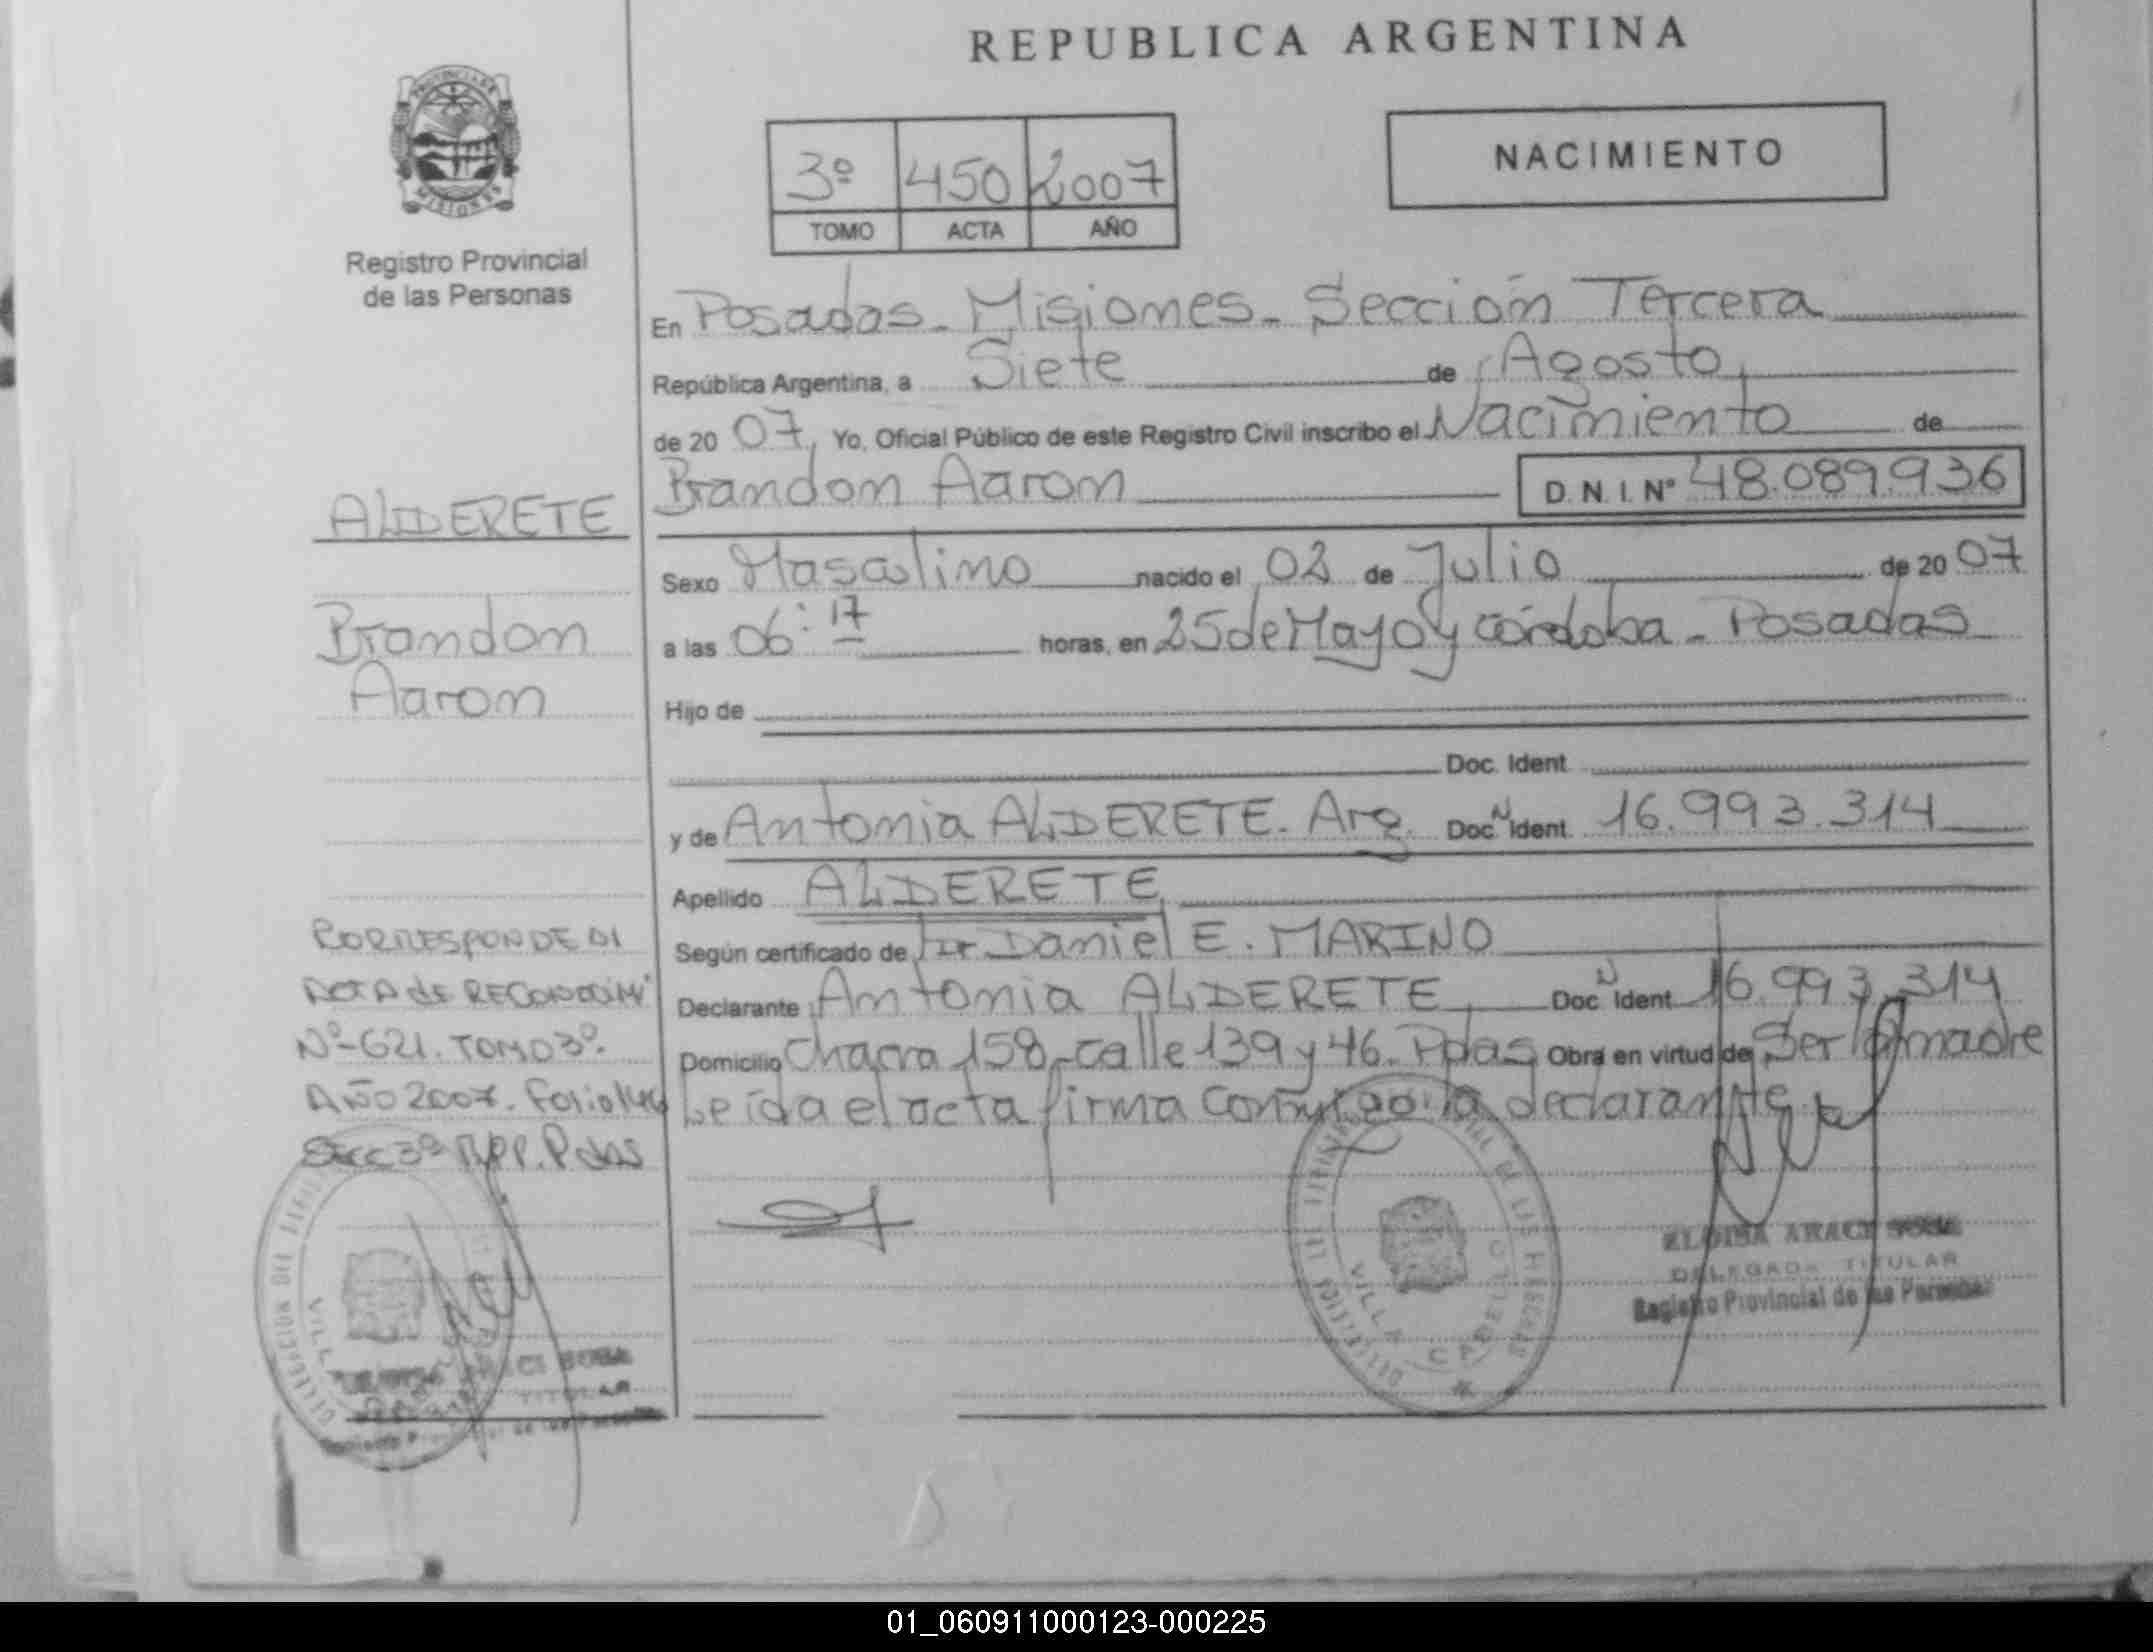 REPUBLICA ARGENTINA
PROVINCIA DE
MISIONES
Registro Provincial
de las Personas
3º 450 2007
TOMO ACTA AÑO
NACIMIENTO
En Posadas - Misiones - Sección Tercera
República Argentina, a Siete de Agosto,
de 20 07, Yo, Oficial Público de este Registro Civil inscribo el Nacimiento de
Brandon Aaron D.N.I. Nº 48.089.936
Sexo Masculino nacido el 02 de Julio de 20 07
a las 06:17 horas, en 25 de Mayo y córdoba - Posadas
Hijo de
Doc. Ident.
y de Antonia ALDERETE. Arg. Doc. N Ident. 16.993.314
Apellido ALDERETE
Según certificado de Dr Daniel E. MARINO
Declarante Antonia ALDERETE, Doc. N Ident. 16.993.314
Domicilio Chacra 158 - calle 139 y 46. Pdas Obra en virtud de Ser la madre
Leída el acta firma conmigo la declarante
ALDERETE
Brandon
Aaron
CORRESPONDE AL
ACTA de RECONOCIM
Nº 621. TOMO 3º.
AÑO 2007. Folio 146
Secc 3º RPP. Pdas
DELEGACION DEL
VILLA CABELLO
DE LAS PERSONAS
ARACI SOSA
DELEGADA TITULAR
Registro Provincial de las Personas
ARACI SOSA
TITULAR
01_060911000123-000225